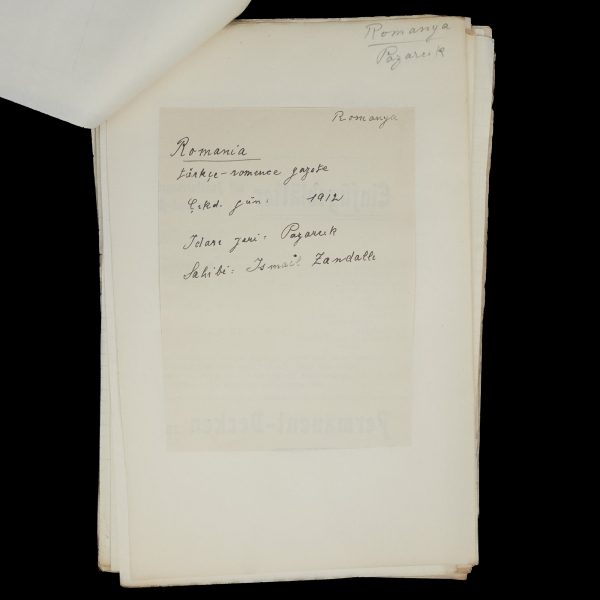 Romanya
Pazarcık
Romanya
Romania
türkçe-romence gazete
Çıkd. gün: 1912
İdare yeri: Pazarcık
Sahibi: Ismail Zandallı
Permanent-Decken